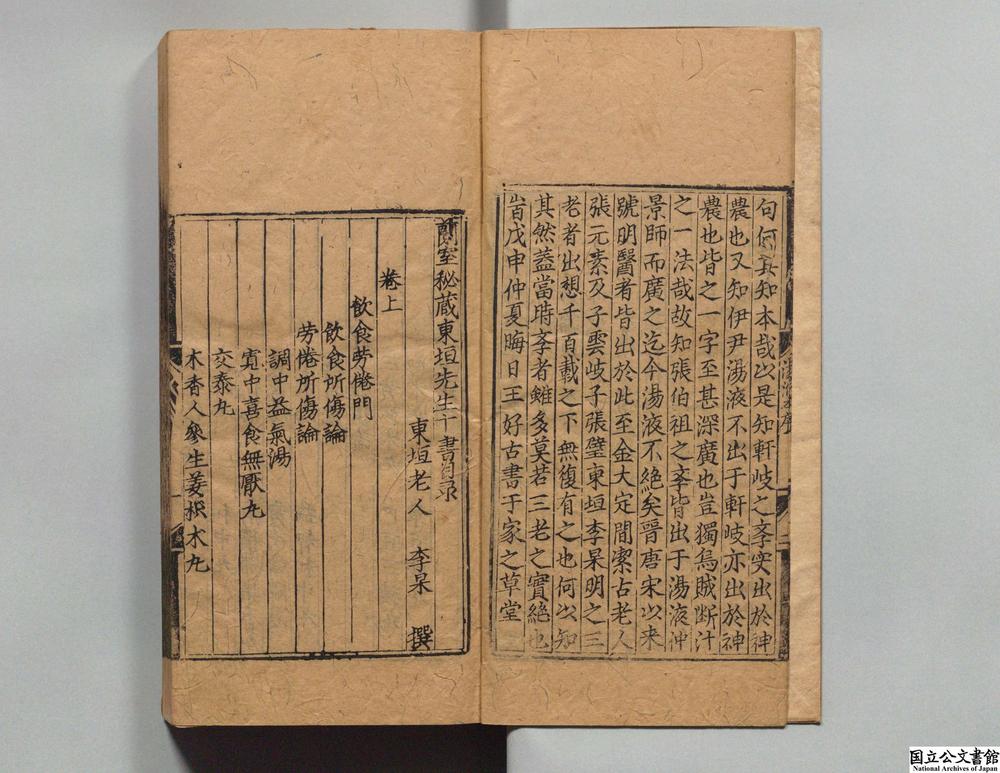 句何其知本哉㕥是知軒岐之斈实出於神
農也又知伊尹湯液不出于軒岐亦出於神
農也皆之一字至甚深廣也豈獨烏賊断汁
之一法哉故知張伯祖之斈皆出于湯液仲
景師而廣之迄今湯液不絶矣晉唐宋㕥来
號明醫者皆出於此至金大定間潔古老人
張元素及子雲岐子張璧東垣李杲明之三
老者出想千百載之下無復有之也何㕥知
其然盖當時斈者雖多莫若三老之實絶也
旹戊申仲夏晦日王好古書于家之草堂
湯液
序
二
蘭室秘蔵東垣先生十書目录
東垣老人 李杲 撰
卷上
飲食劳倦門
飲食所傷論
劳倦所傷論
調中益氣湯
寬中喜食無厭丸
交泰丸
木香人參生姜枳术丸
国立公文書館
National Archives of Japan